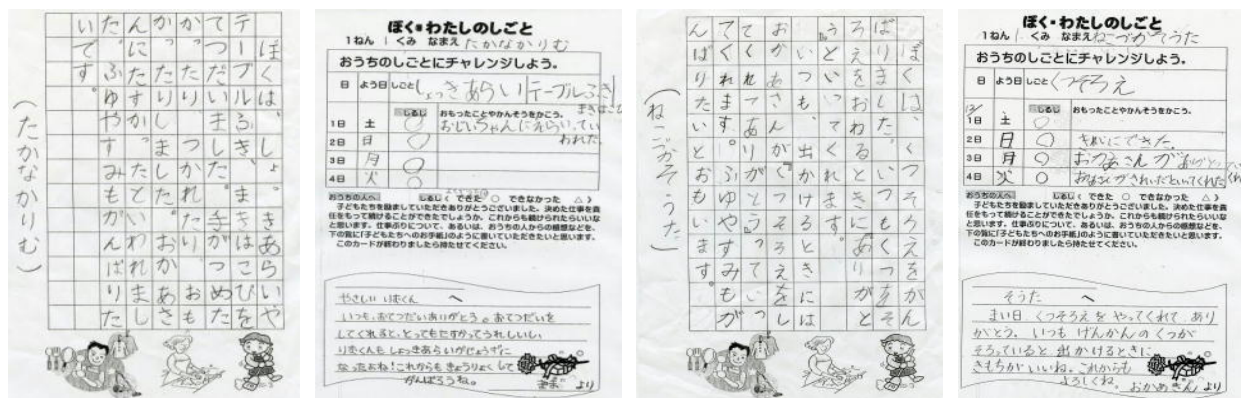 ぼくは、しょっきあらいや
テーブルふき、まきはこびを
てつだいました。手がつめた
かったり、つかれたり、おも
かったりしました。おかあさ
んに、たすかったといわれまし
た。ふゆやすみもがんばりた
いです。
(たかなかりむ)
ぼく・わたしのしごと
1ねん 1くみ なまえ たかなかりむ
おうちのしごとにチャレンジしよう。
日 よう日 しごと しょっきあらい テーブルふき まきはこび
しるし おもったことやかんそうをかこう。
1日 土 ○ おじいちゃんにえらいってい
2日 日 ○ われた。
3日 月 ○
4日 火 ○
おうちの人へ しるし(できた ○ できなかった △)
子どもたちを励ましていただきありがとうございました。決めた仕事を責
任をもって続けることができたでしょうか。これからも続けられたらいいな
と思います。仕事ぶりについて、あるいは、おうちの人からの感想などを、
下の覧に「子どもたちへのお手紙」のように書いていただきたいと思います。
このカードが終わりましたら持たせてください。
やさしい りむくん へ
いつも、おてつだいありがとう。おてつだいを
してくれると、とってもたすかってうれしいし、
りむくんもしょっきあらいがじょうずに
なったよね!これからもきょうりょくして
がんばろうね。
まま より
ぼくは、くつそろえをがん
ばりました。
んばりたいとおもいます。
(ねこづかそうた)
ぼく・わたしのしごと
1ねん 1くみ なまえ ねこづかそうた
おうちのしごとにチャレンジしよう。
日 よう日 しごと くつそろえ
しるし おもったことやかんそうをかこう。
1日 土 ○
2日 日 ○ きれいにできた。
3日 月 ○ おかあさんがありがとう
4日 火 ○ おかあさんがきれいだといってくれた
おうちの人へ しるし(できた ○ できなかった △)
子どもたちを励ましていただきありがとうございました。決めた仕事を責
任をもって続けることができたでしょうか。これからも続けられたらいいな
と思います。仕事ぶりについて、あるいは、おうちの人からの感想などを、
下の覧に「子どもたちへのお手紙」のように書いていただきたいと思います。
このカードが終わりましたら持たせてください。
そうた へ
まい日 くつそろえ をやってくれて あり
がとう。いつも げんかんの くつが
そろっていると 出かけるときに
きもちがいいね。これからも
よろしくね。
おかあさん より